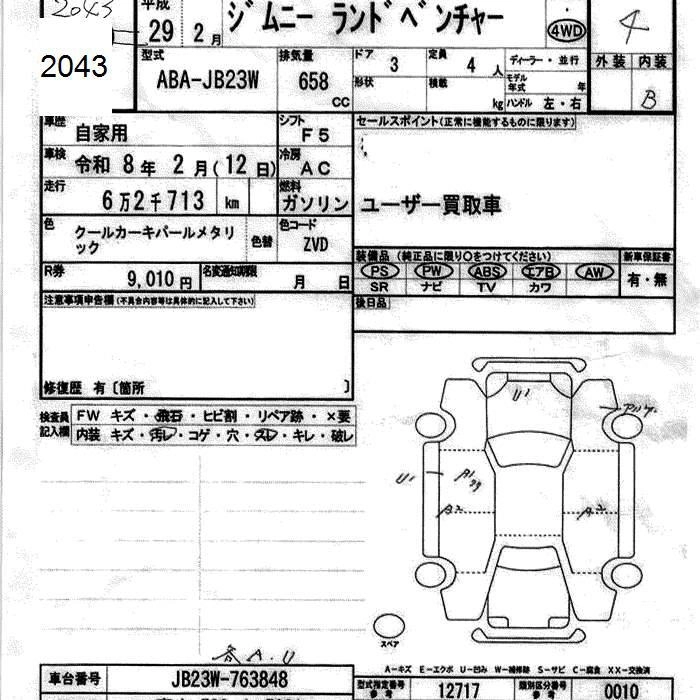 2043
2043
平成
29 2月
ジムニー ランドベンチャー
4WD
4
型式
ABA-JB23W
排気量
658
CC
ドア
3
定員
4 人
形状
積載
kg
ディーラー・並行
モデル年式 年
ハンドル 左・右
外装 内装
B
車歴
自家用
シフト
F5
車検
令和 8年 2月(12日)
冷房
AC
走行
6万2千713 km
燃料
ガソリン
色
クールカーキパールメタリック
色替
色コード
ZVD
R券
9,010円
名変通知期限
月 日
セールスポイント(正常に機能するものに限ります)
ユーザー買取車
装備品 (純正品に限り〇をつけてください)
PS PW ABS エアB AW
SR ナビ TV カワ
新車保証書
有・無
後日品
注意事項申告欄(不具合内容等は具体的に記入して下さい)
修復歴 有〔箇所 〕
検査員記入欄
FW キズ・飛石・ヒビ割・リペア跡・×要
内装 キズ・汚レ・コゲ・穴・スレ・キレ・破レ
U1
U1
A2
A2
スペア
各A.U
A-キズ E-エクボ U-凹み W-補修跡 S-サビ C-腐食 XX-交換済
車台番号
JB23W-763848
型式指定番号
参考
12717
類別区分番号
参考
0010